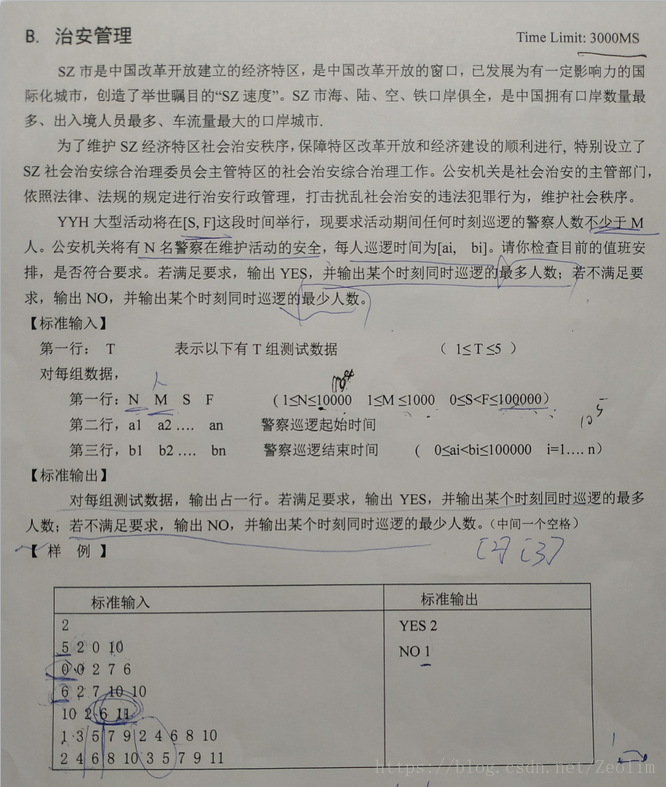 B. 治安管理
Time Limit: 3000MS
SZ 市是中国改革开放建立的经济特区，是中国改革开放的窗口，已发展为有一定影响力的国
际化城市，创造了举世瞩目的“SZ 速度”。SZ 市海、陆、空、铁口岸俱全，是中国拥有口岸数量最
多、出入境人员最多、车流量最大的口岸城市.
为了维护 SZ 经济特区社会治安秩序，保障特区改革开放和经济建设的顺利进行, 特别设立了
SZ 社会治安综合治理委员会主管特区的社会治安综合治理工作。公安机关是社会治安的主管部门，
依照法律、法规的规定进行治安行政管理，打击扰乱社会治安的违法犯罪行为，维护社会秩序。
YYH 大型活动将在[S, F]这段时间举行，现要求活动期间任何时刻巡逻的警察人数不少于 M
人。公安机关将有 N 名警察在维护活动的安全，每人巡逻时间为[ai, bi]。请你检查目前的值班安
排，是否符合要求。若满足要求，输出 YES，并输出某个时刻同时巡逻的最多人数；若不满足要
求，输出 NO，并输出某个时刻同时巡逻的最少人数。
【标准输入】
第一行： T 表示以下有 T 组测试数据 （ 1≤ T ≤5 ）
对每组数据，
第一行：N M S F ( 1≤N≤10000 1≤M ≤1000 0≤S<F≤100000）
第二行，a1 a2 …. an 警察巡逻起始时间
第三行，b1 b2 …. bn 警察巡逻结束时间 ( 0≤ai<bi≤100000 i=1…. n）
10^5
【标准输出】
对每组测试数据，输出占一行。若满足要求，输出 YES，并输出某个时刻同时巡逻的最多
人数；若不满足要求，输出 NO，并输出某个时刻同时巡逻的最少人数。（中间一个空格）
【 样 例 】
[2] [3]
标准输入 标准输出
2
5 2 0 10
0 0 2 7 6
6 2 7 10 10
10 2 6 11
1 3 5 7 9 2 4 6 8 10
2 4 6 8 10 3 5 7 9 11
YES 2
NO 1
https://blog.csdn.net/Zeolim